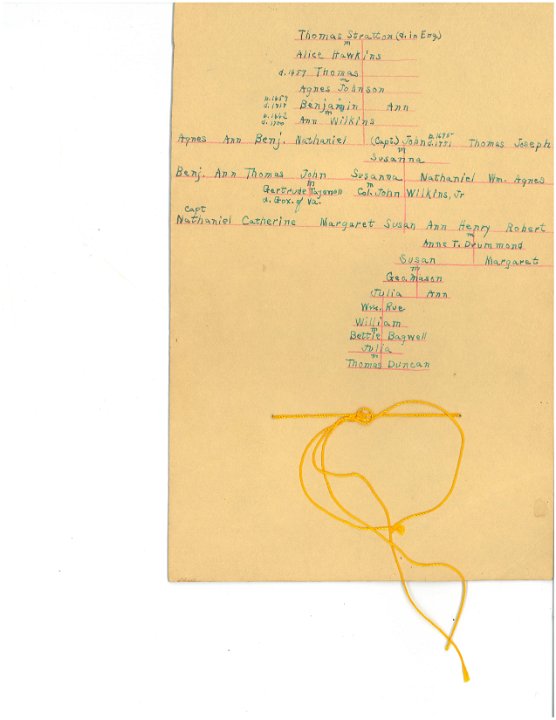 Thomas Stratton (d. in Eng)
m
Alice Hawkins
d. 1659 Thomas
m
Agnes Johnson
Benjamin Ann
m
Ann Wilkins
Agnes Ann Benj. Nathaniel (Capt) John Thomas Joseph
m
Susanna
Benj. Ann Thomas John Susanna Nathaniel Wm. Agnes
m m
Gertrude Col. John Wilkins, Jr
d. Gov. of Va.
Capt
Nathaniel Catherine Margaret Susan Ann Henry Robert
m
Anne T. Drummond
Susan Margaret
m
Geo. Mason
Julia Ann
Wm. Rue
William
m
Bettie Bagwell
Julia
m
Thomas Duncan